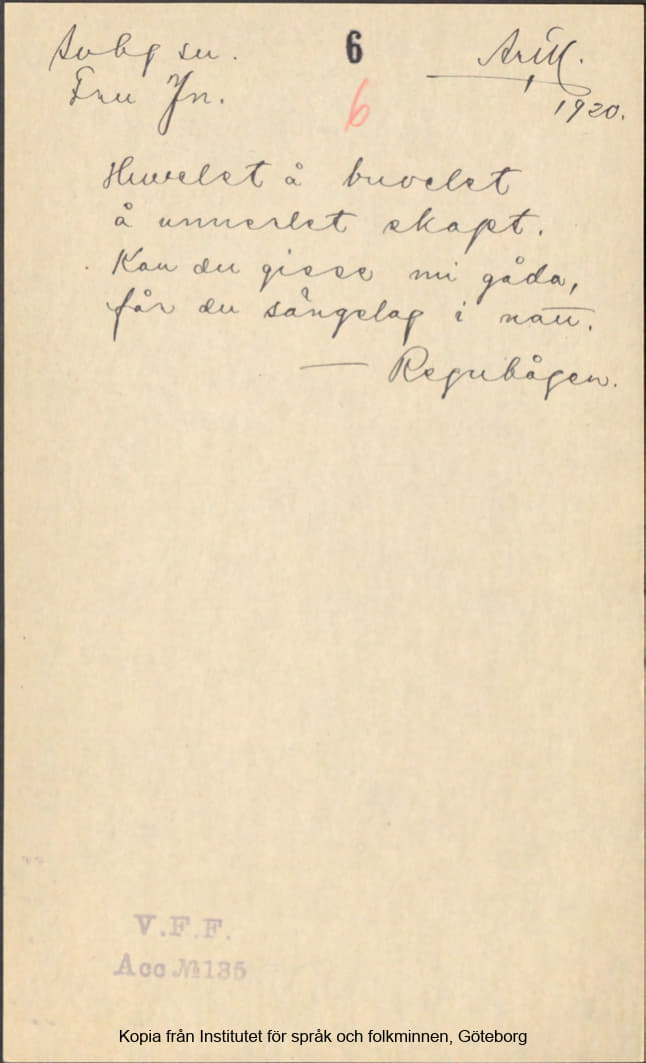 6
Fru Jn.
6
1920.
Huvelet å buvelet
å unnerlet skapt.
Kan du gissa mi gåda,
får du sängelag i natt.
— Regnbågen.
V.F.F.
Acc № 135
Kopia från Institutet för språk och folkminnen, Göteborg